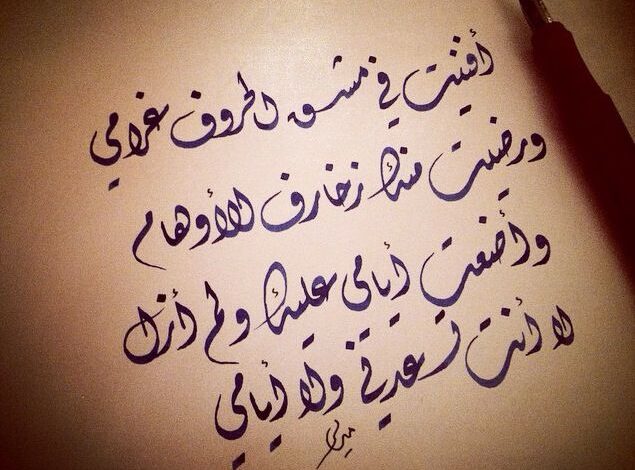 أفنيت في مشق الحروف غرامي
ورضيت منك زخارف الأوهام
وأضعت أيامي عليك ولم أزل
لا أنت تسعدني ولا أيامي